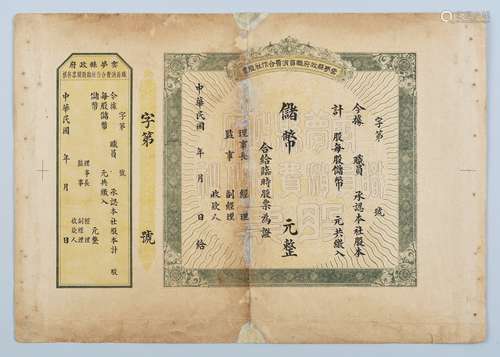 雲夢縣政府職員消費合作社股票
字第　號
今據　職員　承認本社股本
計　股每股儲幣　元共繳入
儲幣　元整
合給臨時股票為證
理事長　經理
監事　副經理
收款人
中華民國　年　月　日給
字第　號
雲夢縣政府
職員消費合作社臨時股票存根
字第　號
今據　職員　承認本社股本計　股
每股儲幣　元共繳入
儲幣　元整
理事長　經理
監事　副經理
收款人
中華民國　年　月　日